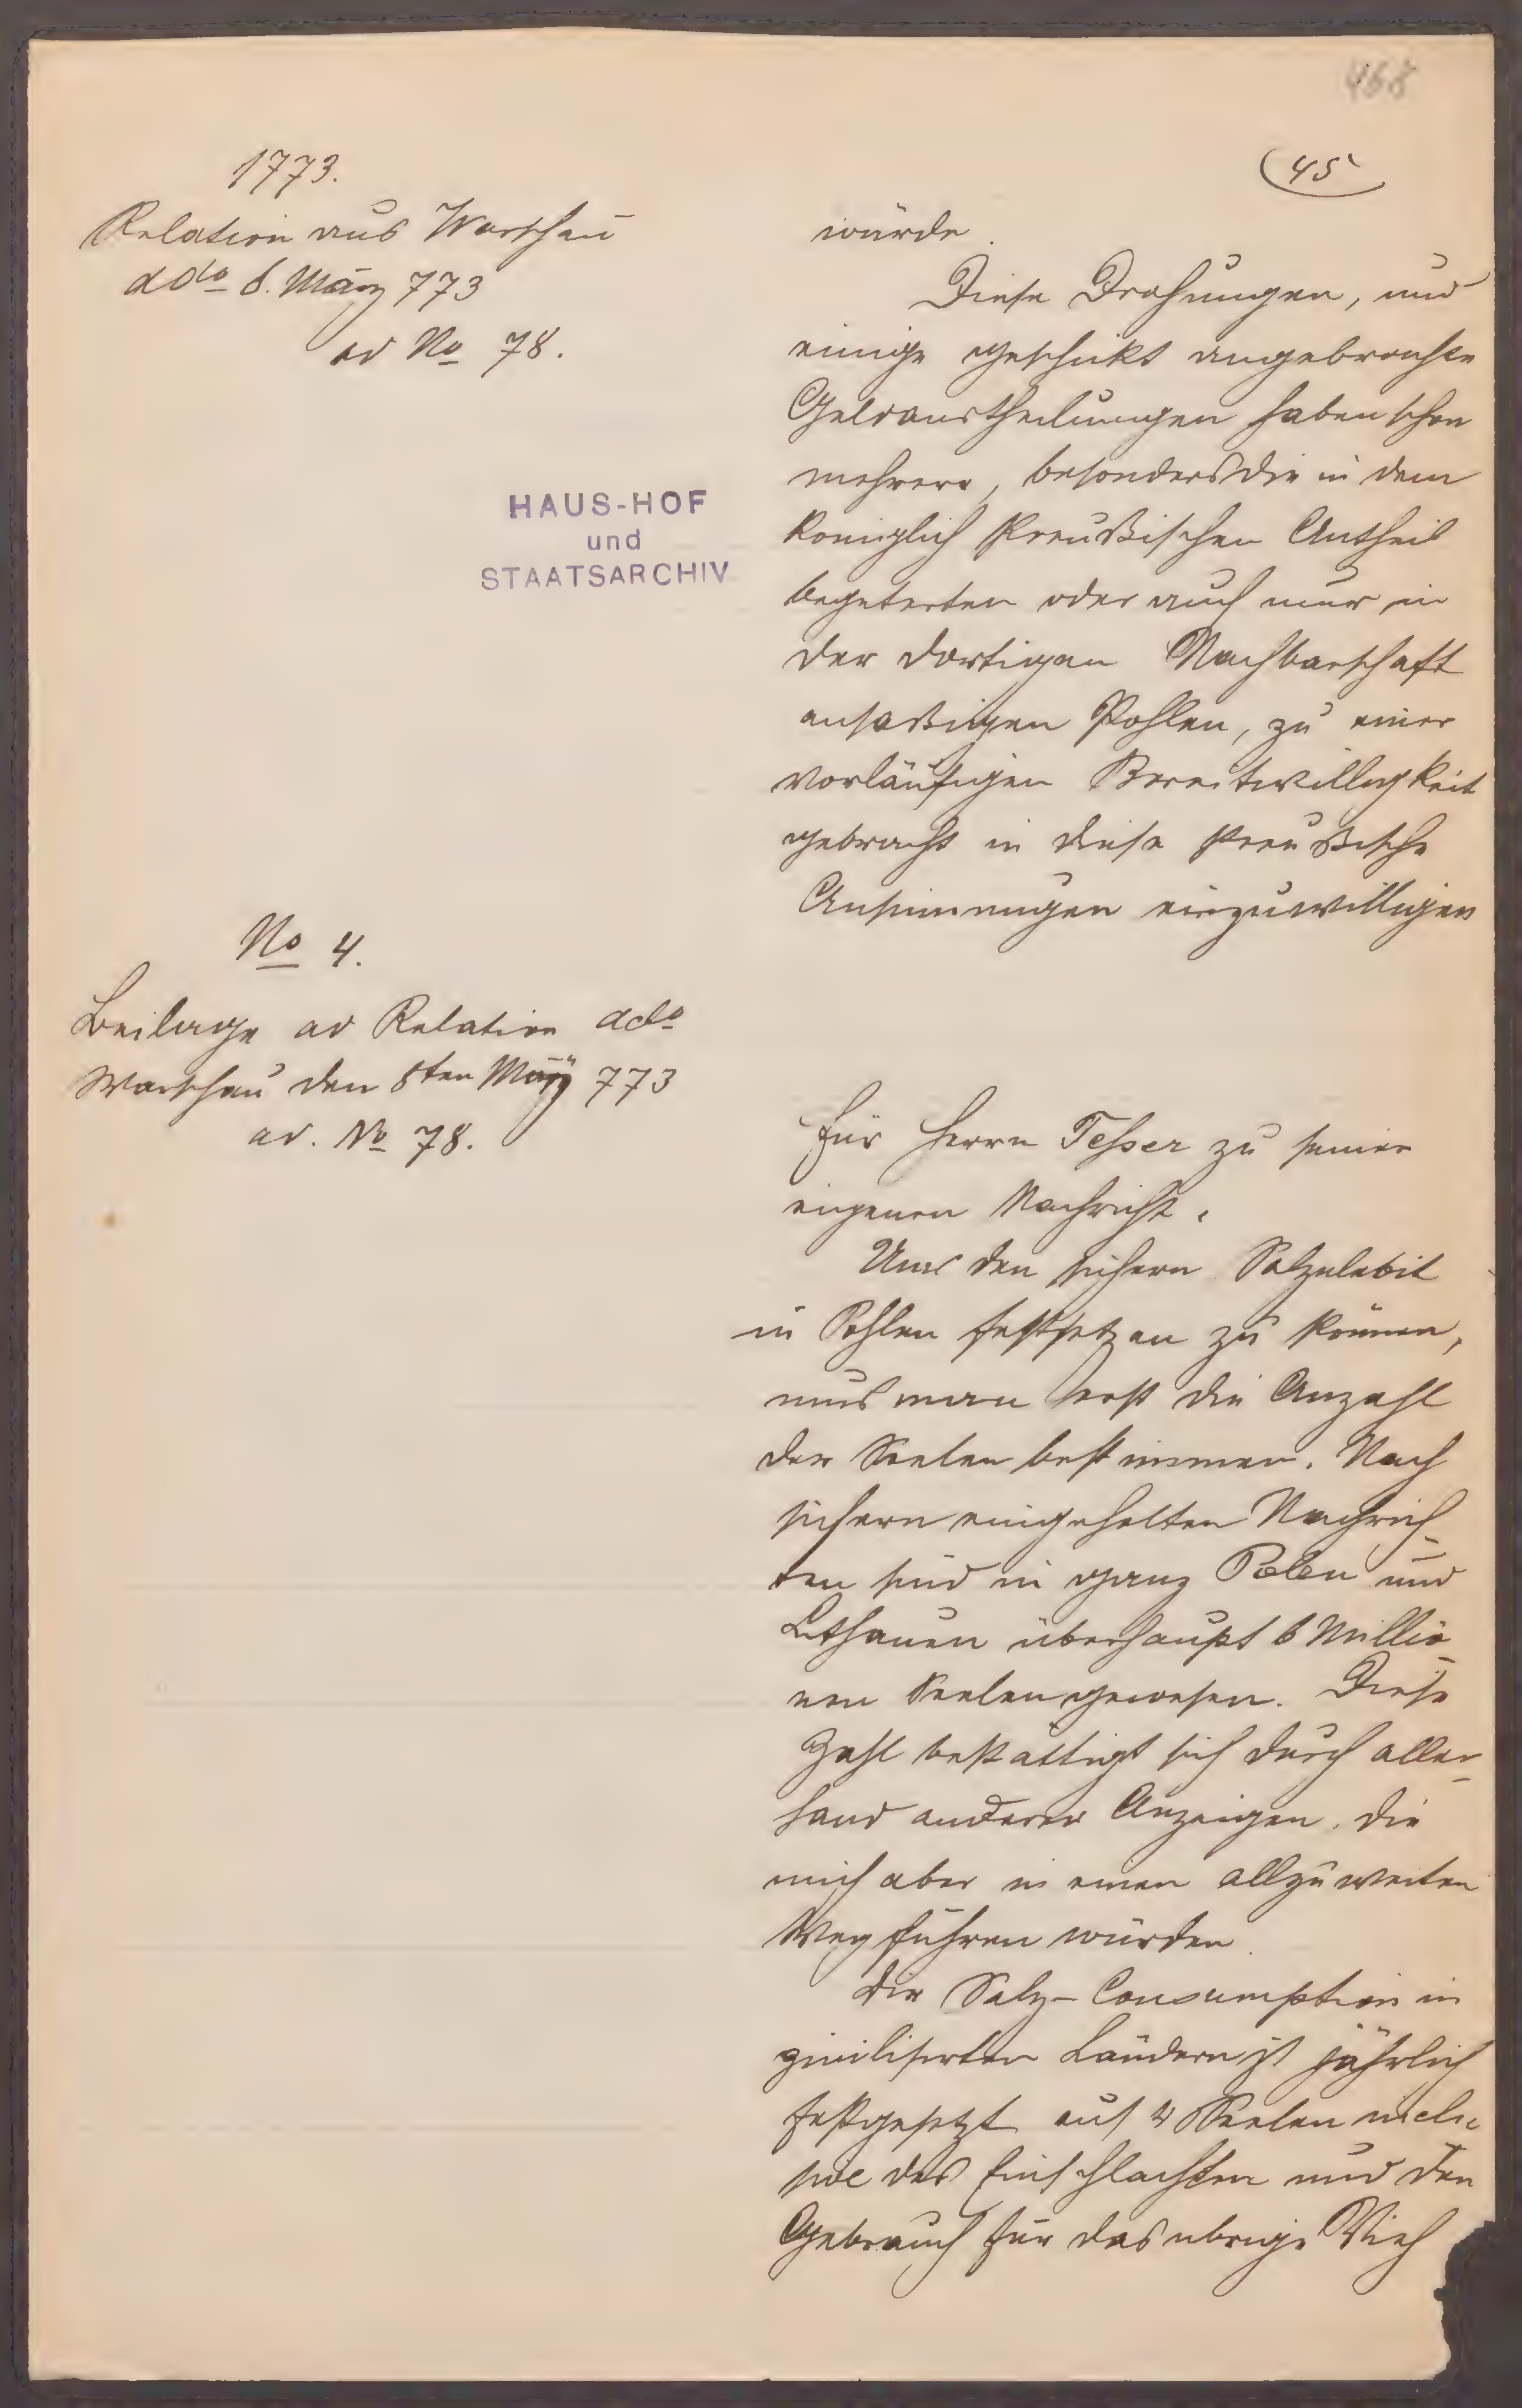 468
45
1773.
Relation aus Warschau
ddo 8. März 773
ad No 78.
HAUS-HOF
und
STAATSARCHIV
würde.
Diese Drohungen, und
einige geschickt angebrachte
Geldaustheilungen haben schon
mehrere, besonders die in dem
königlich Preußischen Antheil
begüterten oder auch nur in
der dortigen Nachbarschaft
ansaßigen Pohlen, zu einer
vorläufigen Bereitwilligkeit
gebracht in diese Preußische
Ansinnungen einzuwilligen
No 4.
Beilage ad Relation ddo
Warschau den 8ten März 773
ad. No 78.
Für Herrn Tesser zu seiner
eigenen Nachricht.
Um den sichern Salzdebit
in Pohlen festsetzen zu können,
mus man erst die Anzahl
der Seelen bestimmen. Nach
sichern eingeholten Nachrich-
ten sind in ganz Polen und
Litthauen überhaupt 6 Millio-
nen Seelen gewesen. Diese
Zahl bestättigt sich durch aller-
hand anderer Anzeigen, die
mich aber in einen allzu weiten
Weg führen würden.
Die Salz-Consumption in
zivilisirten Ländern ist jährlich
festgesetzt auf 4 Seelen inclu-
sive des Einschlachten und den
Gebrauch für das übrige Vieh